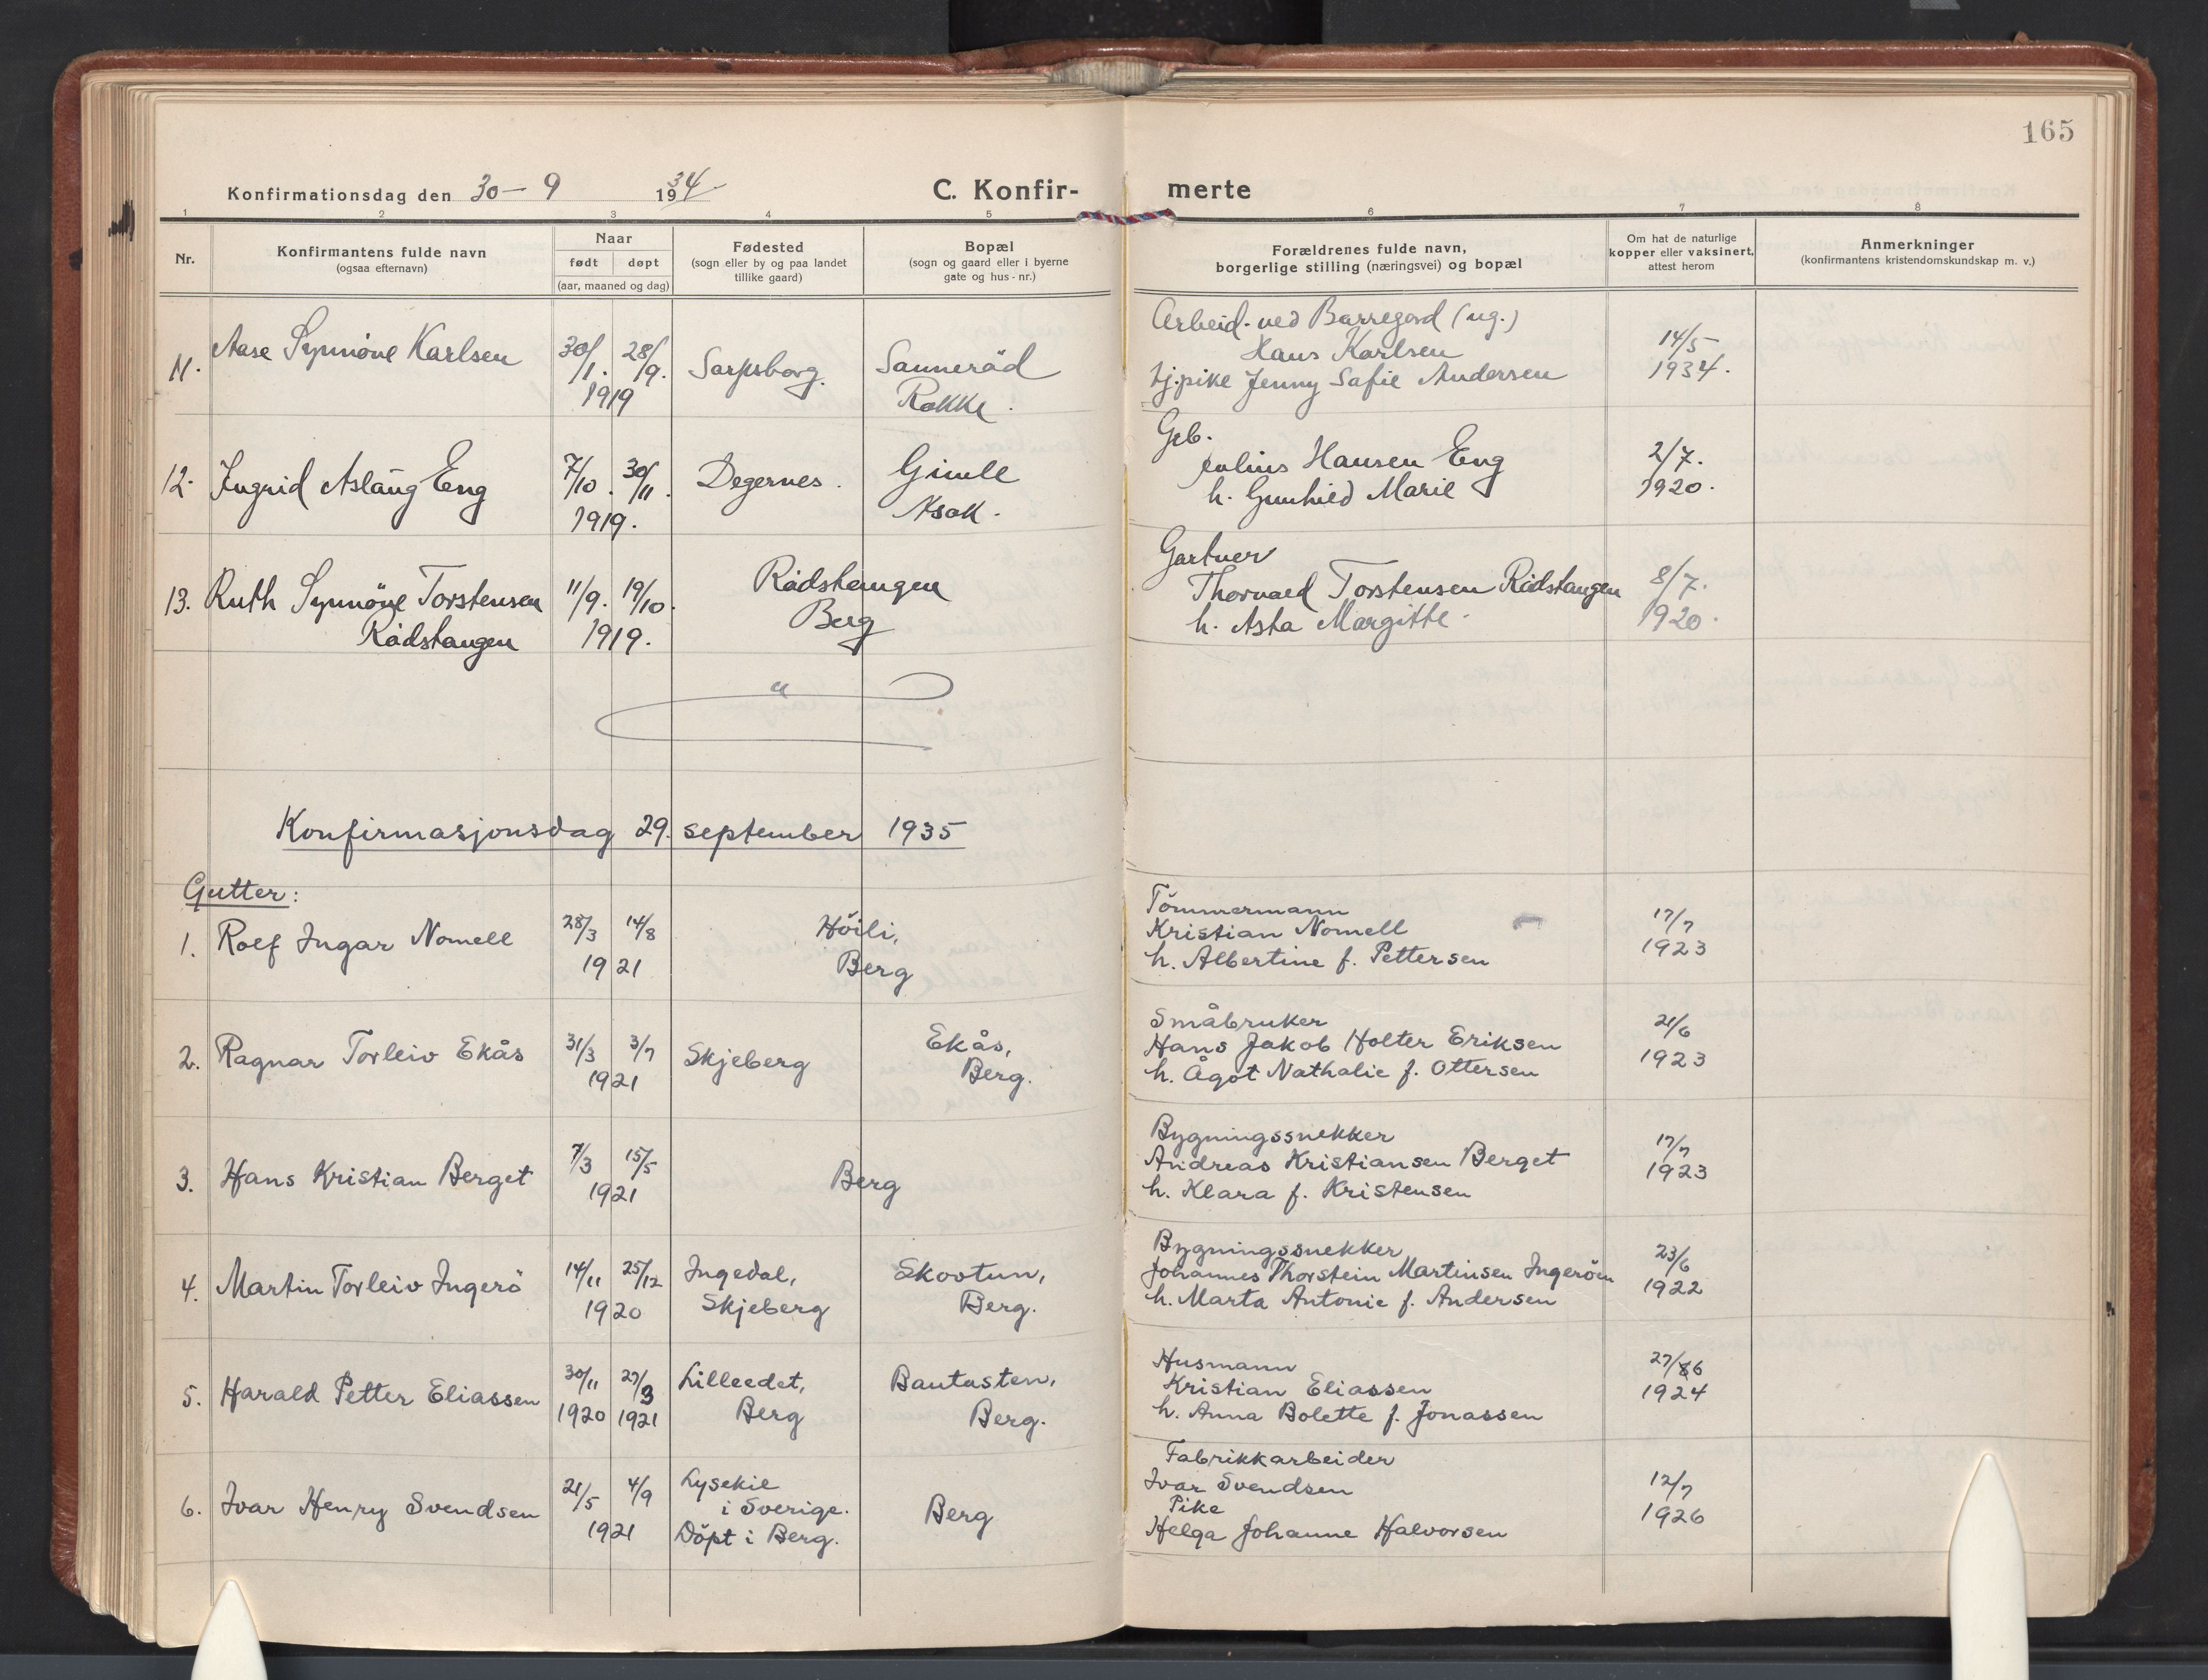 165
Konfirmationsdag den 30-9 1934
C. Konfir-merte
1 2 3 4 5 6 7 8
Nr.
Konfirmantens fulde navn
(ogsaa efternavn)
Naar
født døpt
(aar, maaned og dag)
Fødested
(sogn eller by og paa landet
tillike gaard)
Bopæl
(sogn og gaard eller i byerne
gate og hus-nr.)
Forældrenes fulde navn,
borgerlige stilling (næringsvei) og bopæl
Om hat de naturlige
kopper eller vaksinert,
attest herom
Anmerkninger
(konfirmantens kristendomskundskap m. v.)
11. Aase Synnöve Karlsen 30/1. 28/9. 1919 Sarpsborg. Sanneråd Rokke.
Arbeid. ved Borregård (ug.)
Hans Karlsen
tj.pike Jenny Sofie Andersen
14/5 1934.
12. Ingrid Aslaug Eng 7/10. 30/11. 1919. Degernes. Gimle Asak.
Grb.
Julius Hansen Eng
h. Gunhild Marie
2/7. 1920.
13. Ruth Synnöve Torstensen Rådstangen 11/9. 19/10. 1919. Rådstangen Berg
Gartner
Thorvald Torstensen Rådstangen
h. Asta Margitte.
8/7. 1920.
"
Konfirmasjonsdag 29. september 1935
Gutter:
1. Rolf Ingar Nomell 28/3 14/8 1921 Höili, Berg
Tömmermann
Kristian Nomell
h. Albertine f. Pettersen
17/7 1923
2. Ragnar Torleiv Ekås 31/3 3/7 1921 Skjeberg Ekås, Berg.
Småbruker
Hans Jakob Holter Eriksen
h. Ågot Nathalie f. Ottersen
21/6 1923
3. Hans Kristian Berget 7/3 15/5 1921 Berg
Bygningssnekker
Andreas Kristiansen Berget
h. Klara f. Kristensen
17/7 1923
4. Martin Torleiv Ingerö 14/11 25/12 1920 Ingedal, Skjeberg Skovtun, Berg.
Bygningssnekker
Johannes Thorstein Martinsen Ingeröen
h. Marta Antonie f. Andersen
23/6 1922
5. Harald Petter Eliassen 30/11 1920 27/3 1921 Lilleedet, Berg Bautasten, Berg.
Husmann
Kristian Eliassen
h. Anna Bolette f. Jonassen
27/6 1924
6. Ivar Henry Svendsen 21/5 4/9 1921 Lysekil i Sverige. Döpt i Berg. Berg
Fabrikkarbeider
Ivar Svendsen
Pike
Helga Johanne Halvorsen
12/7 1926